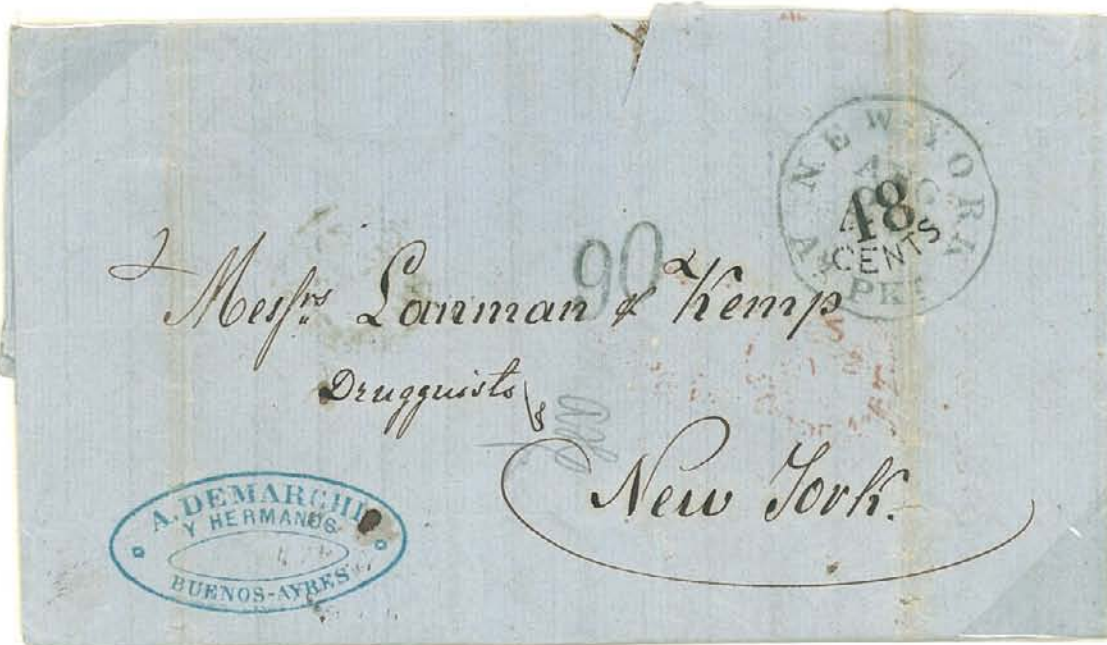 NEW YORK
AUG
48
CENTS
PKT
90
Messrs. Lanman & Kemp
Drugguists
New York.
A. DEMARCHI
Y HERMANOS
BUENOS-AYRES